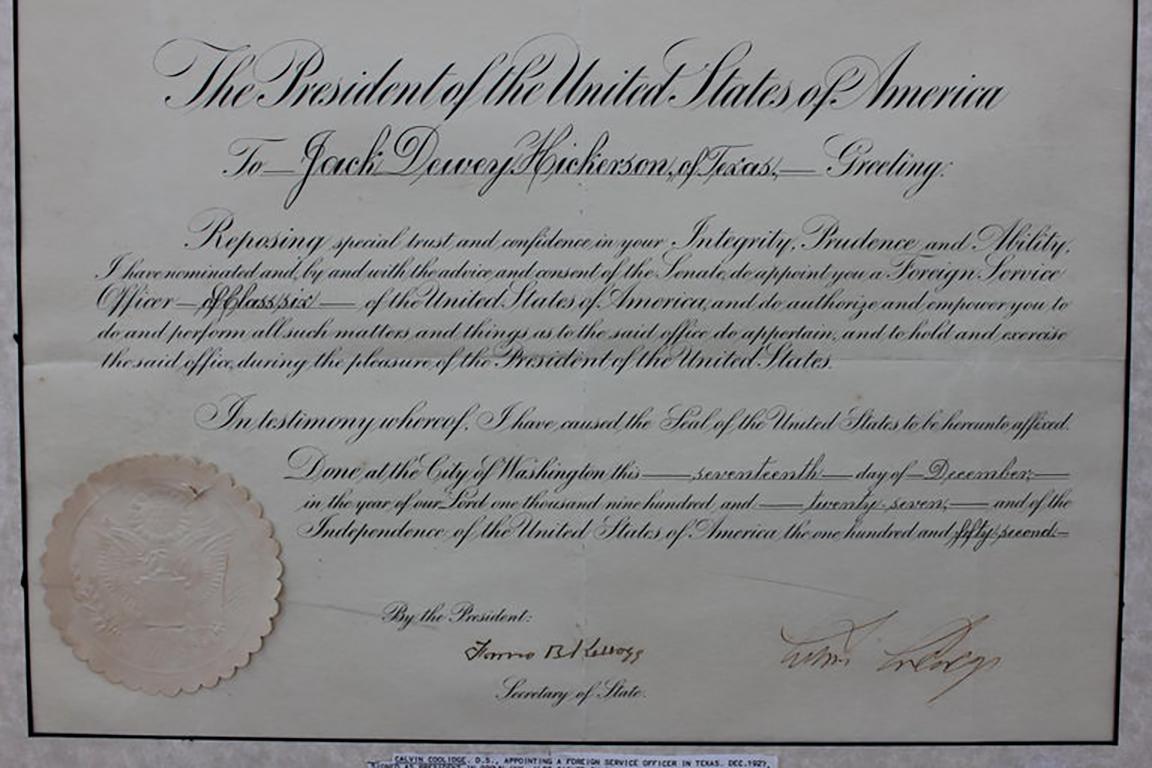 The President of the United States of America
To Jack Dewey Hickerson, of Texas, Greeting:
Reposing special trust and confidence in your Integrity, Prudence and Ability,
I have nominated and, by and with the advice and consent of the Senate, do appoint you a Foreign Service
Officer of Class six of the United States of America, and do authorize and empower you to
do and perform all such matters and things as to the said office do appertain, and to hold and exercise
the said office, during the pleasure of the President of the United States.
In testimony whereof, I have caused the Seal of the United States to be hereunto affixed.
Done at the City of Washington this seventeenth day of December,
in the year of our Lord one thousand nine hundred and twenty seven, and of the
Independence of the United States of America the one hundred and fifty second.
By the President:
Frank B Kellogg
Calvin Coolidge
Secretary of State.
CALVIN COOLIDGE. D.S., APPOINTING A FOREIGN SERVICE OFFICER IN TEXAS. DEC.1927,